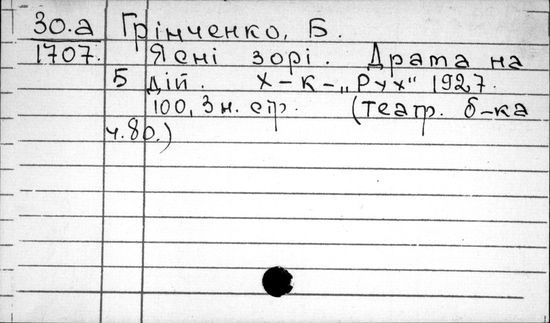 30.а Грінченко, Б.
1707. Ясні зорі. Драма на
5 дій. Х-К-„Рух" 1927.
100, 3 н. стр. (театр. б-ка
ч.80.)